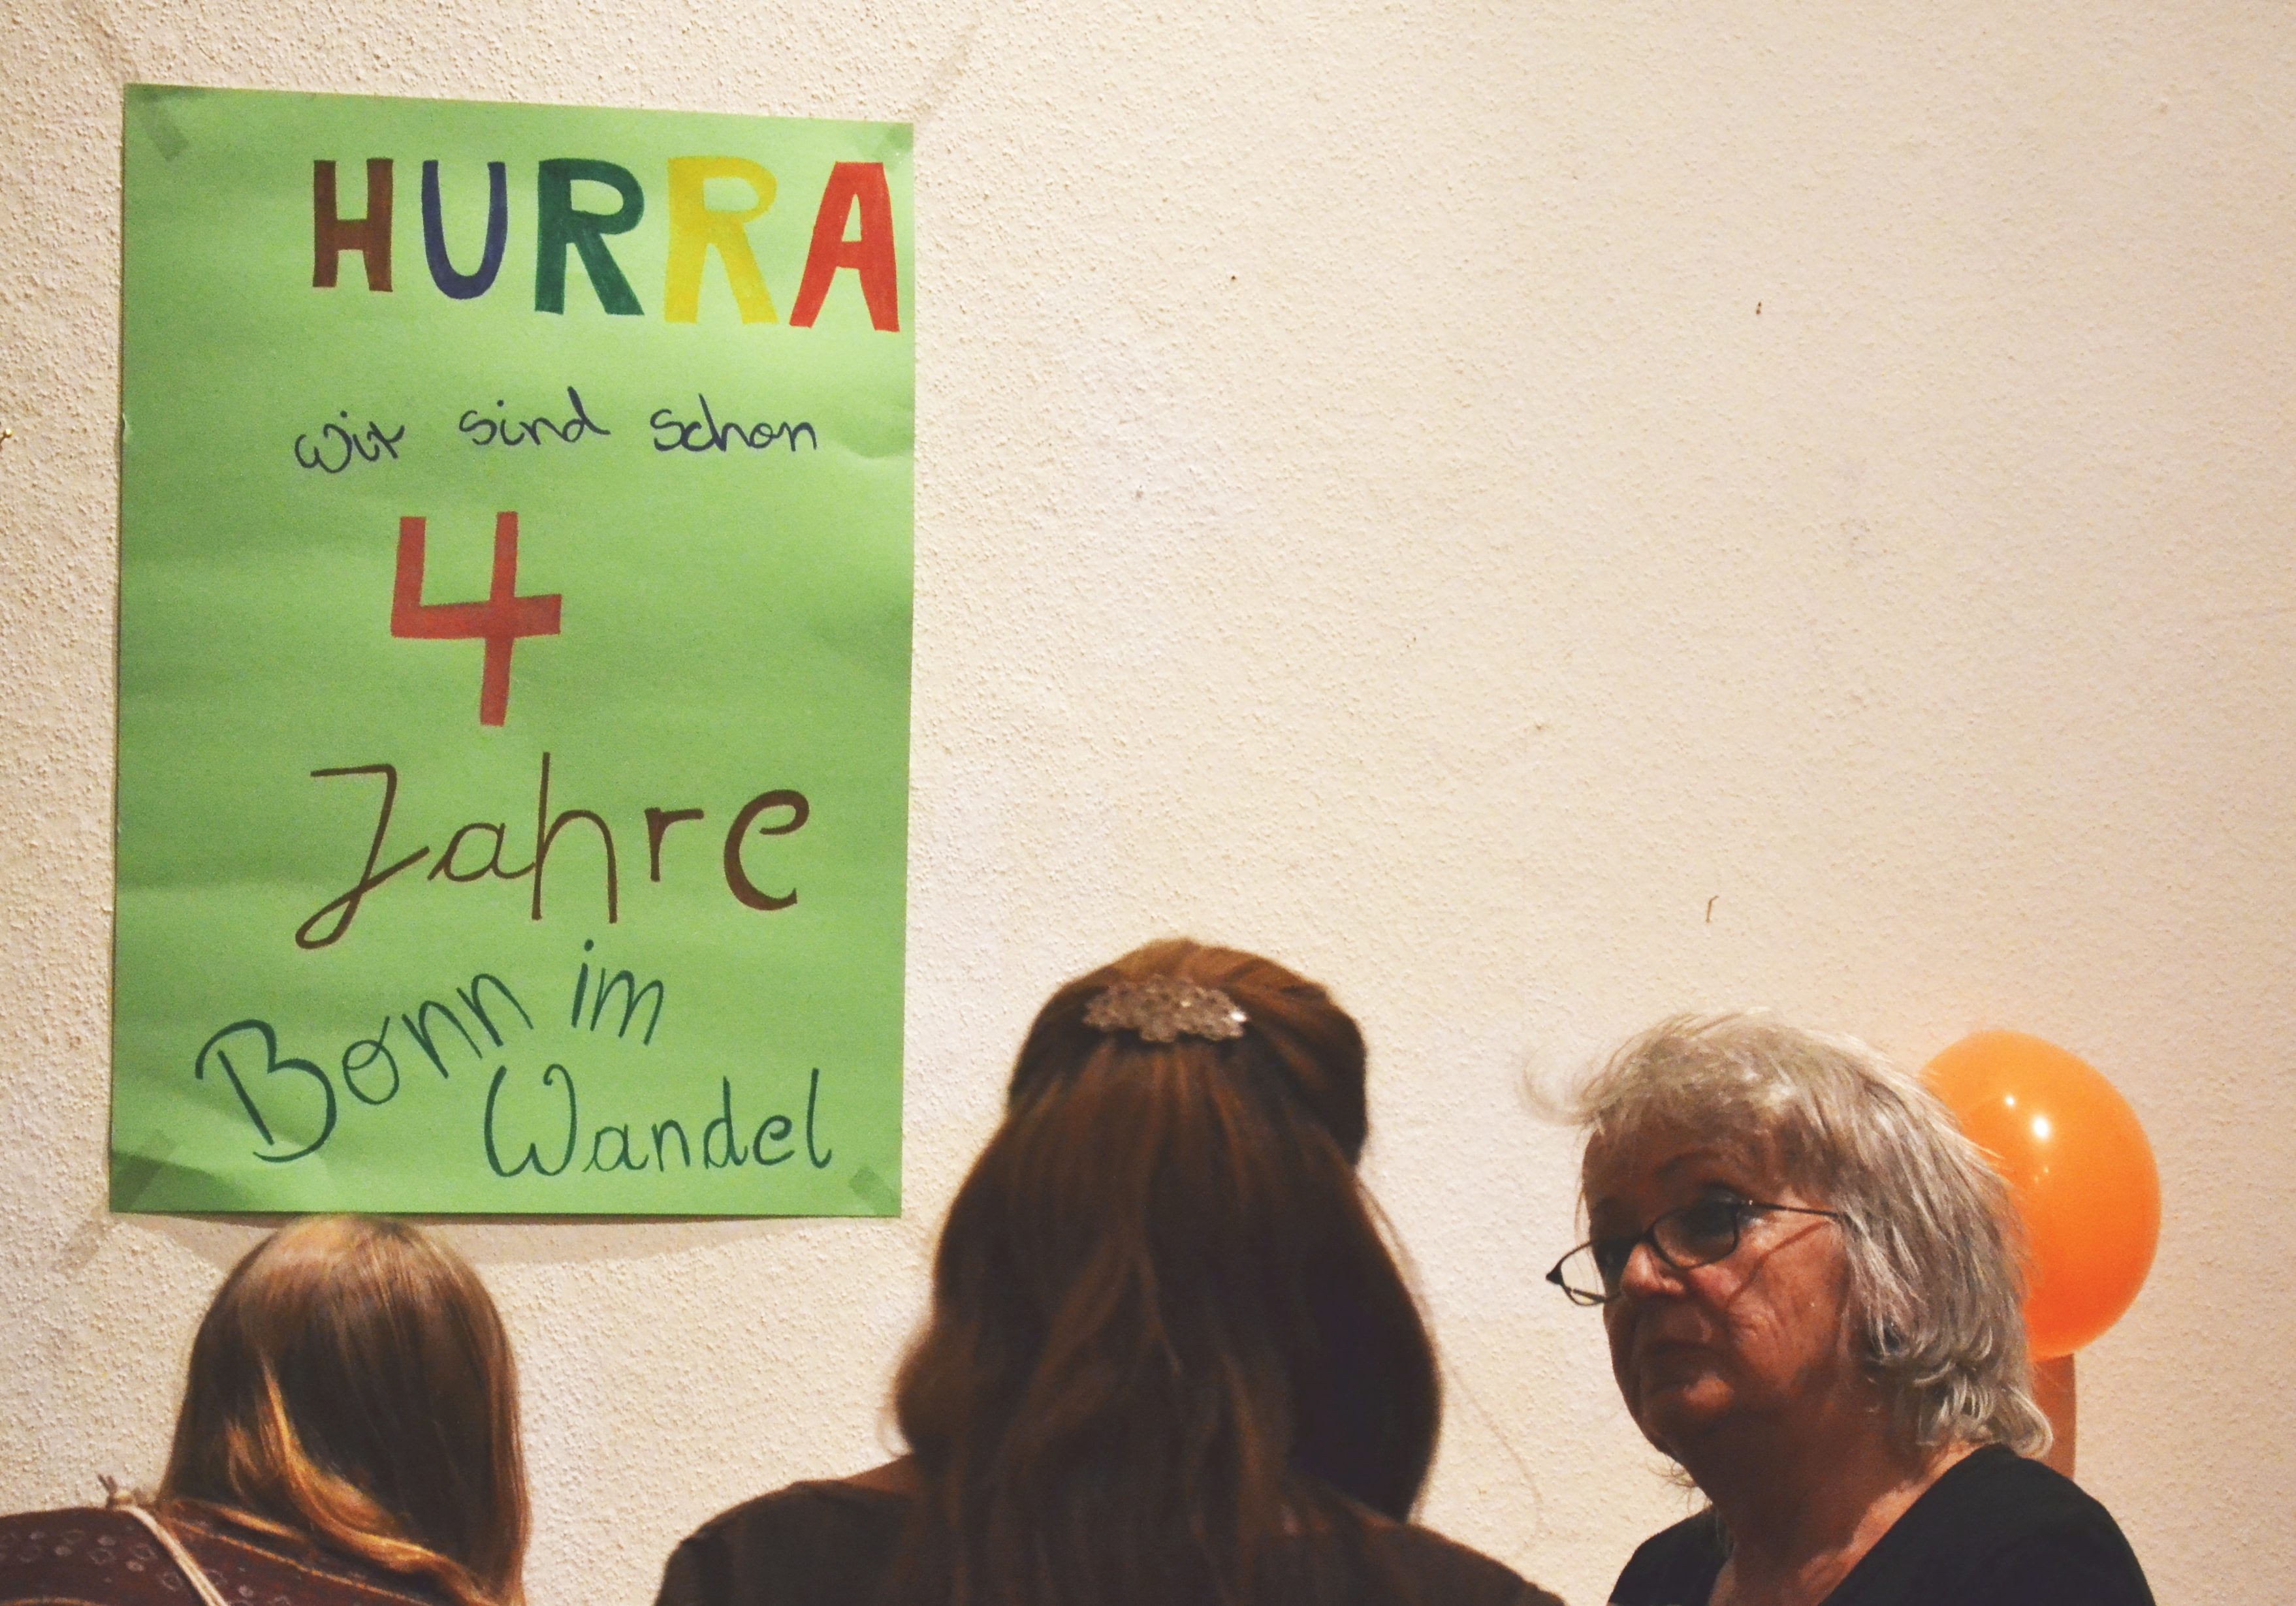 HURRA
wir sind schon
4
Jahre
Bonn im
Wandel